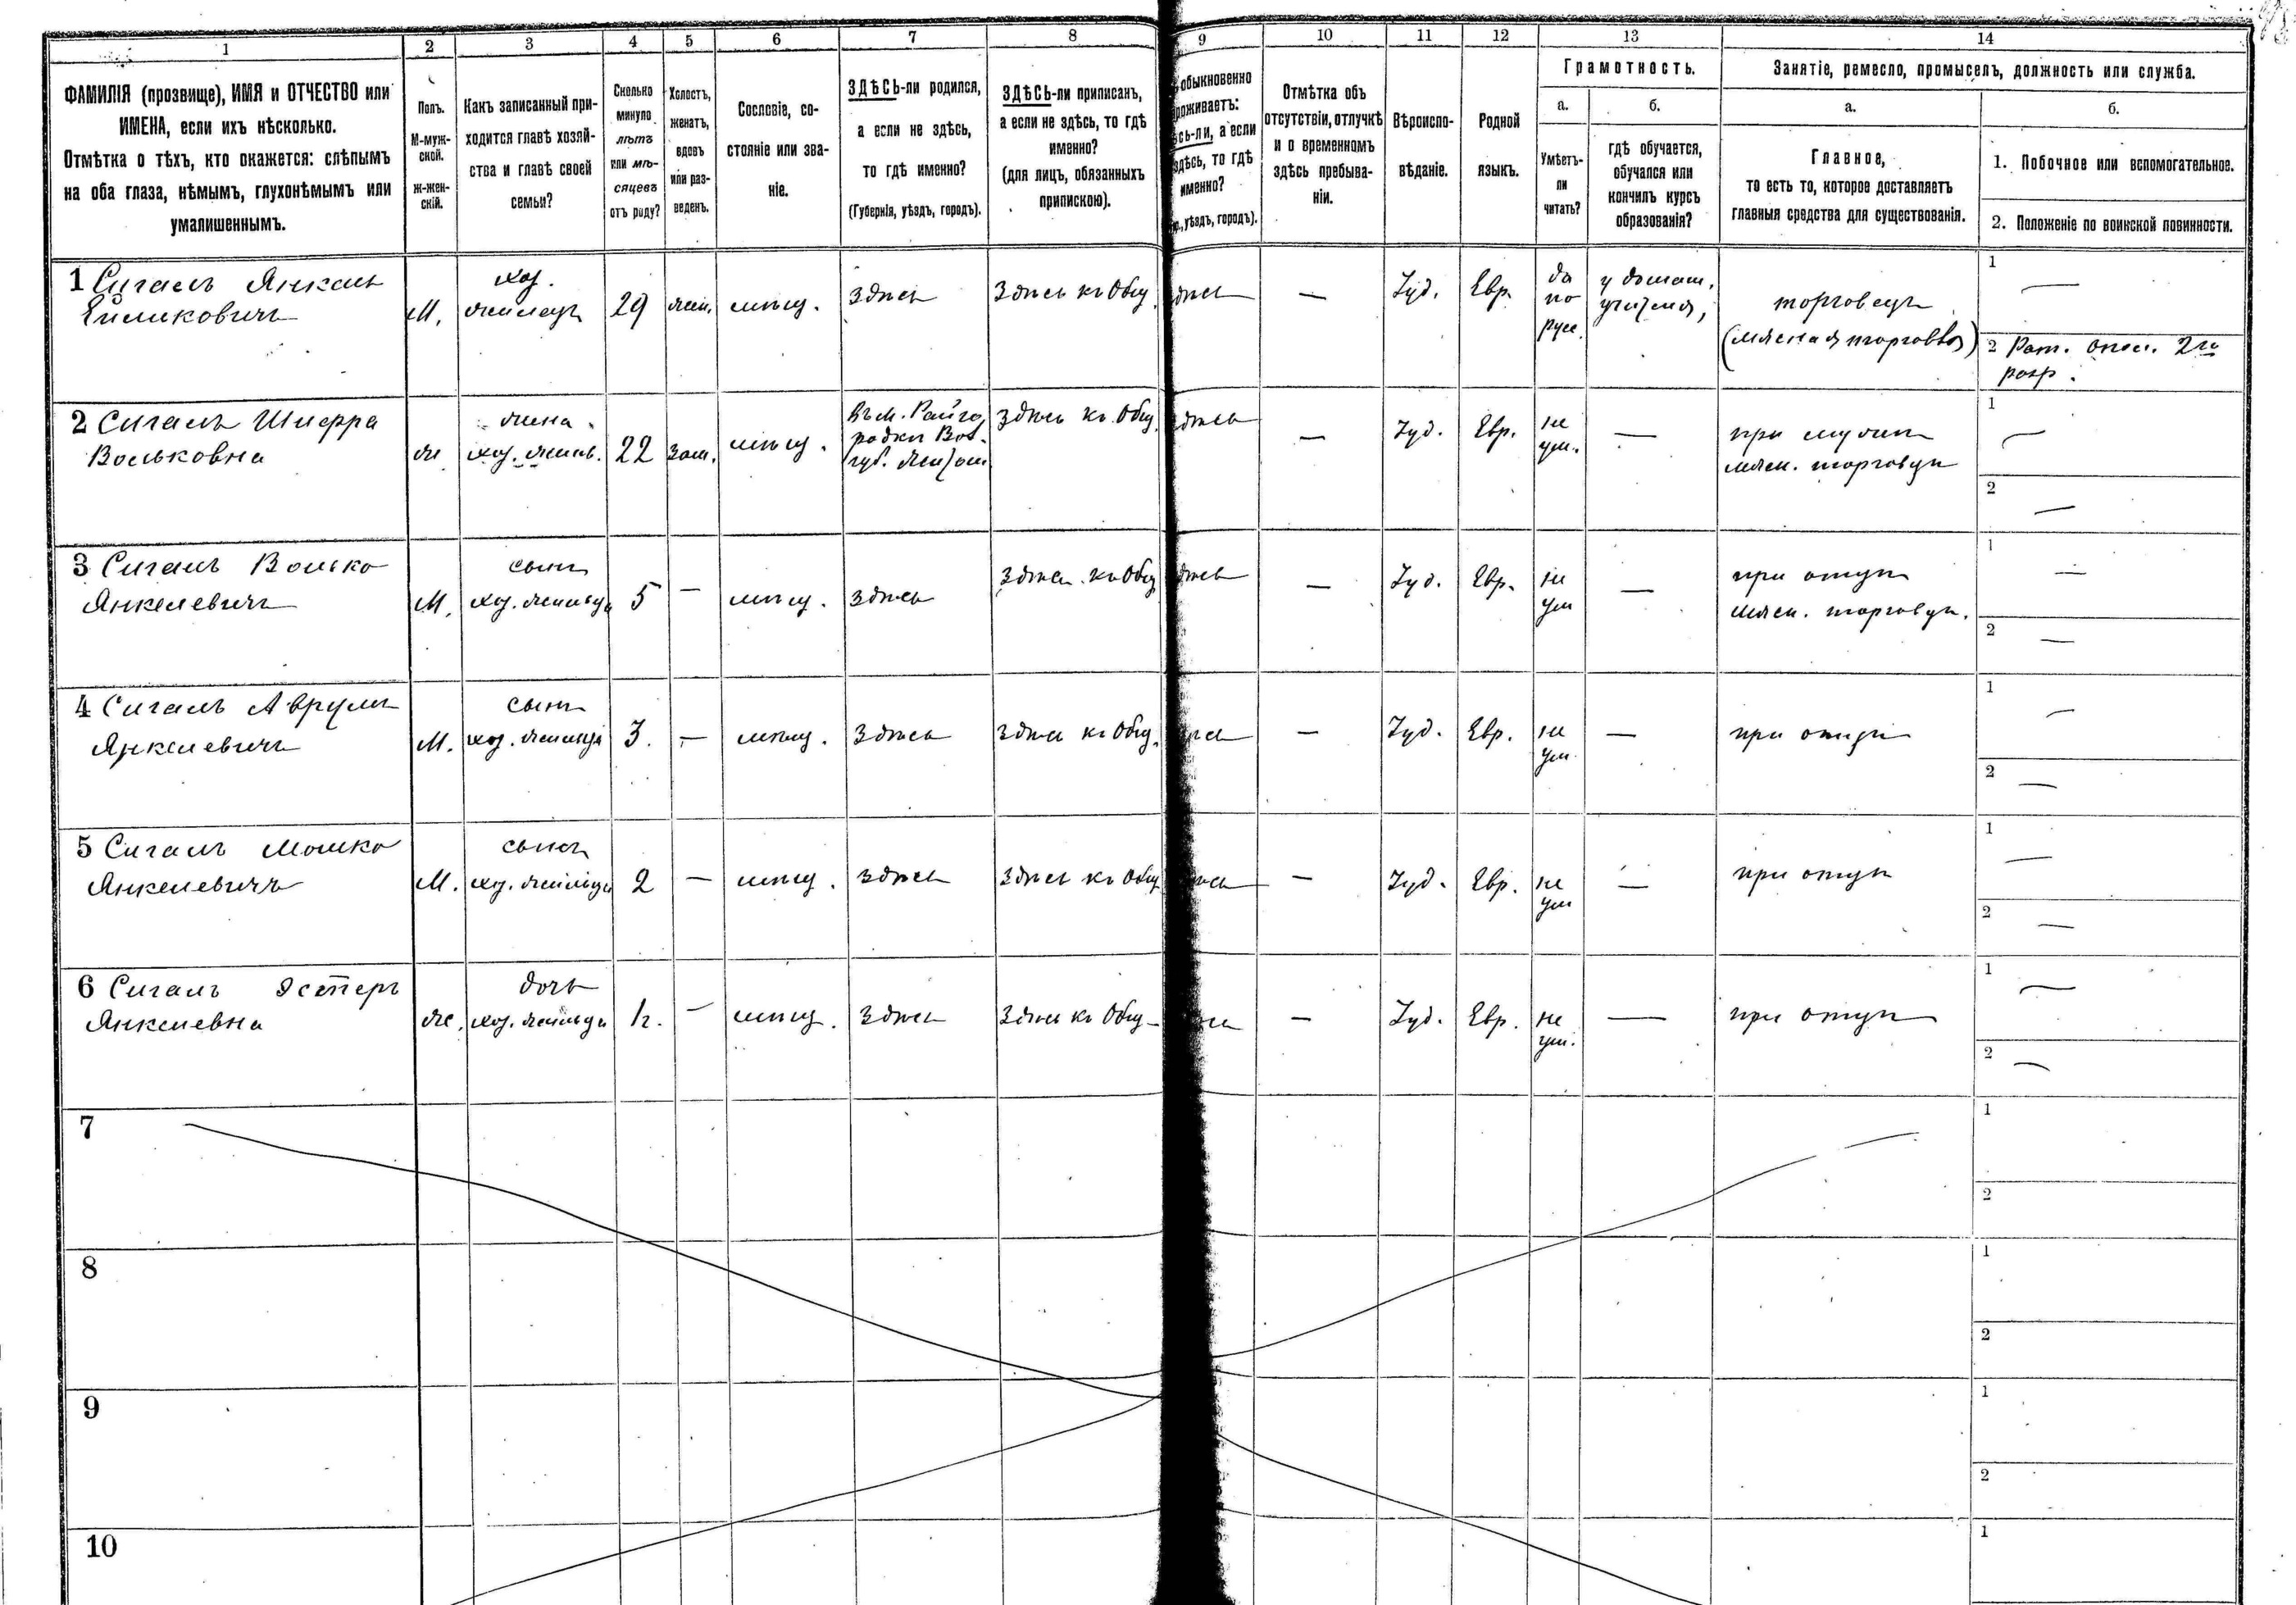 1
2
3
4
5
6
7
8
9
10
11
12
13
14
ФАМИЛІЯ (прозвище), ИМЯ и ОТЧЕСТВО или
ИМЕНА, если ихъ нѣсколько.
Отмѣтка о тѣхъ, кто окажется: слѣпымъ
на оба глаза, нѣмымъ, глухонѣмымъ или
умалишеннымъ.
Полъ.
М-муж-
ской.
ж-жен-
скій.
Какъ записанный при-
ходится главѣ хозяй-
ства и главѣ своей
семьи?
Сколько
минуло
лѣтъ
или мѣ-
сяцевъ
отъ роду?
Холостъ,
женатъ,
вдовъ
или раз-
веденъ.
Сословіе, со-
стояніе или зва-
ніе.
ЗДѢСЬ-ли родился,
а если не здѣсь,
то гдѣ именно?
(Губернія, уѣздъ, городъ).
ЗДѢСЬ-ли приписанъ,
а если не здѣсь, то гдѣ
именно?
(для лицъ, обязанныхъ
припискою).
обыкновенно
роживаетъ:
сь-ли, а если
здѣсь, то гдѣ
именно?
уѣздъ, городъ).
Отмѣтка объ
отсутствіи, отлучкѣ
и о временномъ
здѣсь пребыва-
ніи.
Вѣроиспо-
вѣданіе.
Родной
языкъ.
Грамотность.
а.
Умѣетъ-
ли
читать?
б.
гдѣ обучается,
обучался или
кончилъ курсъ
образованія?
Занятіе, ремесло, промыселъ, должность или служба.
а.
Главное,
то есть то, которое доставляетъ
главныя средства для существованія.
б.
1. Побочное или вспомогательное.
2. Положеніе по воинской повинности.
1 Сигалъ Янкель
М.
хоз.
29
жен.
мѣщ.
здѣсь
Здѣсь къ Общ.
—
Іуд.
Евр.
да
по
русс.
у домаш.
торговецъ
(мясная торговля)
1 —
2 Рат. опол. 2го
разр.
2 Сигалъ Шифра
Вольковна
ж
жена
хоз.
22
зам.
мѣщ.
губ.
здѣсь къ Общ.
—
Іуд.
Евр.
не
ум.
—
при мужѣ
мясн. торговцѣ
1 —
2 —
3 Сигалъ Волько
Янкелевичъ
М.
сынъ
хоз. жильца
5
—
мѣщ.
здѣсь
здѣсь къ Общ
—
Іуд.
Евр.
не
ум
—
при отцѣ
мясн. торговцѣ.
1 —
2 —
4 Сигалъ Аврумъ
Янкелевичъ
М.
сынъ
хоз. жильца
3.
—
мѣщ.
здѣсь
здѣсь къ Общ.
—
Іуд.
Евр.
не
ум.
—
при отцѣ
1 —
2 —
5 Сигалъ Мошко
Янкелевичъ
М.
сынъ
хоз. жильца
2
—
мѣщ.
здѣсь
здѣсь къ Общ
—
Іуд.
Евр.
не
ум
—
при отцѣ
1 —
2 —
6 Сигалъ Эстеръ
Янкелевна
ж.
дочь
хоз. жильца
—
мѣщ.
здѣсь
здѣсь къ Общ
—
Іуд.
Евр.
не
ум.
—
при отцѣ
1 —
2 —
7
1
2
8
1
2
9
1
2
10
1